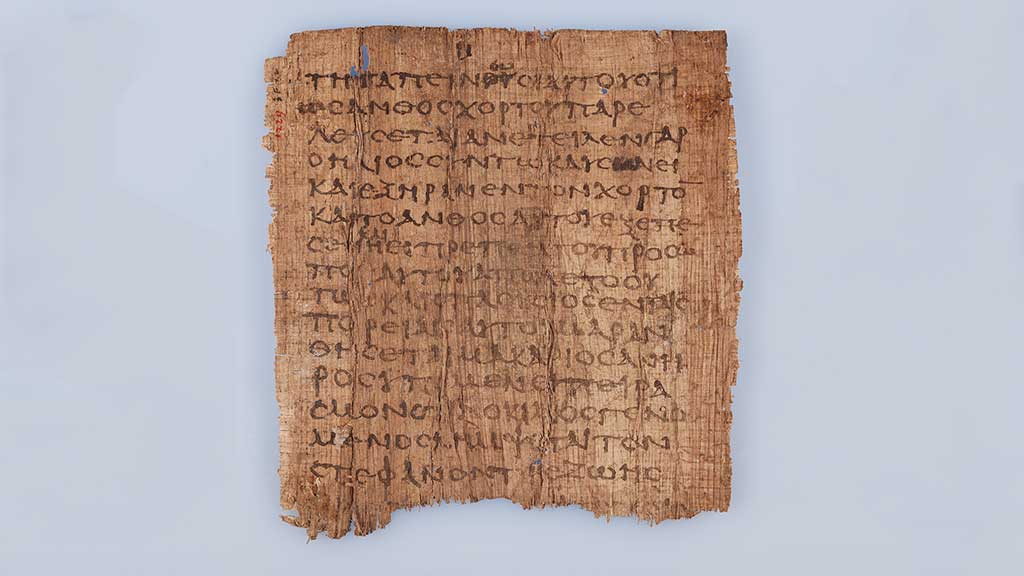 ΤΗ ΤΑΠΕΙΝΩCΙ ΑΥΤΟΥ ΟΤΙ
ΩC ΑΝΘΟC ΧΟΡΤΟΥ ΠΑΡΕ
ΛΕΥCΕΤΑΙ ΑΝΕΤΕΙΛΕΝ ΓΑΡ
Ο ΗΛΙΟC CΥΝ ΤΩ ΚΑΥCΩΝΕΙ
ΚΑΙ ΕΞΗΡΑΝΕΝ ΤΟΝ ΧΟΡΤΟ̅
ΚΑΙ ΤΟ ΑΝΘΟC ΑΥΤΟΥ ΕΞΕΠΕ
CΕΝ Η ΕΥΠΡΕΠ ΠΡΟCΩ
ΠΟΥ ΑΥΤΟΥ ΑΠΩΛΕΤΟ ΟΥ
ΤΩC Ο ΠΛΟΥCΙΟC ΕΝ ΤΑΙC
ΠΟΡΕΙΑΙC ΑΥΤΟΥ ΜΑΡΑΝ
ΘΗCΕΤΑΙ ΜΑΚΑΡΙΟC ΑΝΗ
ΡΟC ΥΠΟΜΕΝΕΙ ΠΕΙΡΑ
CΜΟΝ ΟΤΙ ΔΟΚΙΜΟC ΓΕΝΟ
ΜΕΝΟC ΛΗΜΨΕΤΑΙ ΤΟΝ
CΤΕΦΑΝΟΝ ΤΗC ΖΩΗC